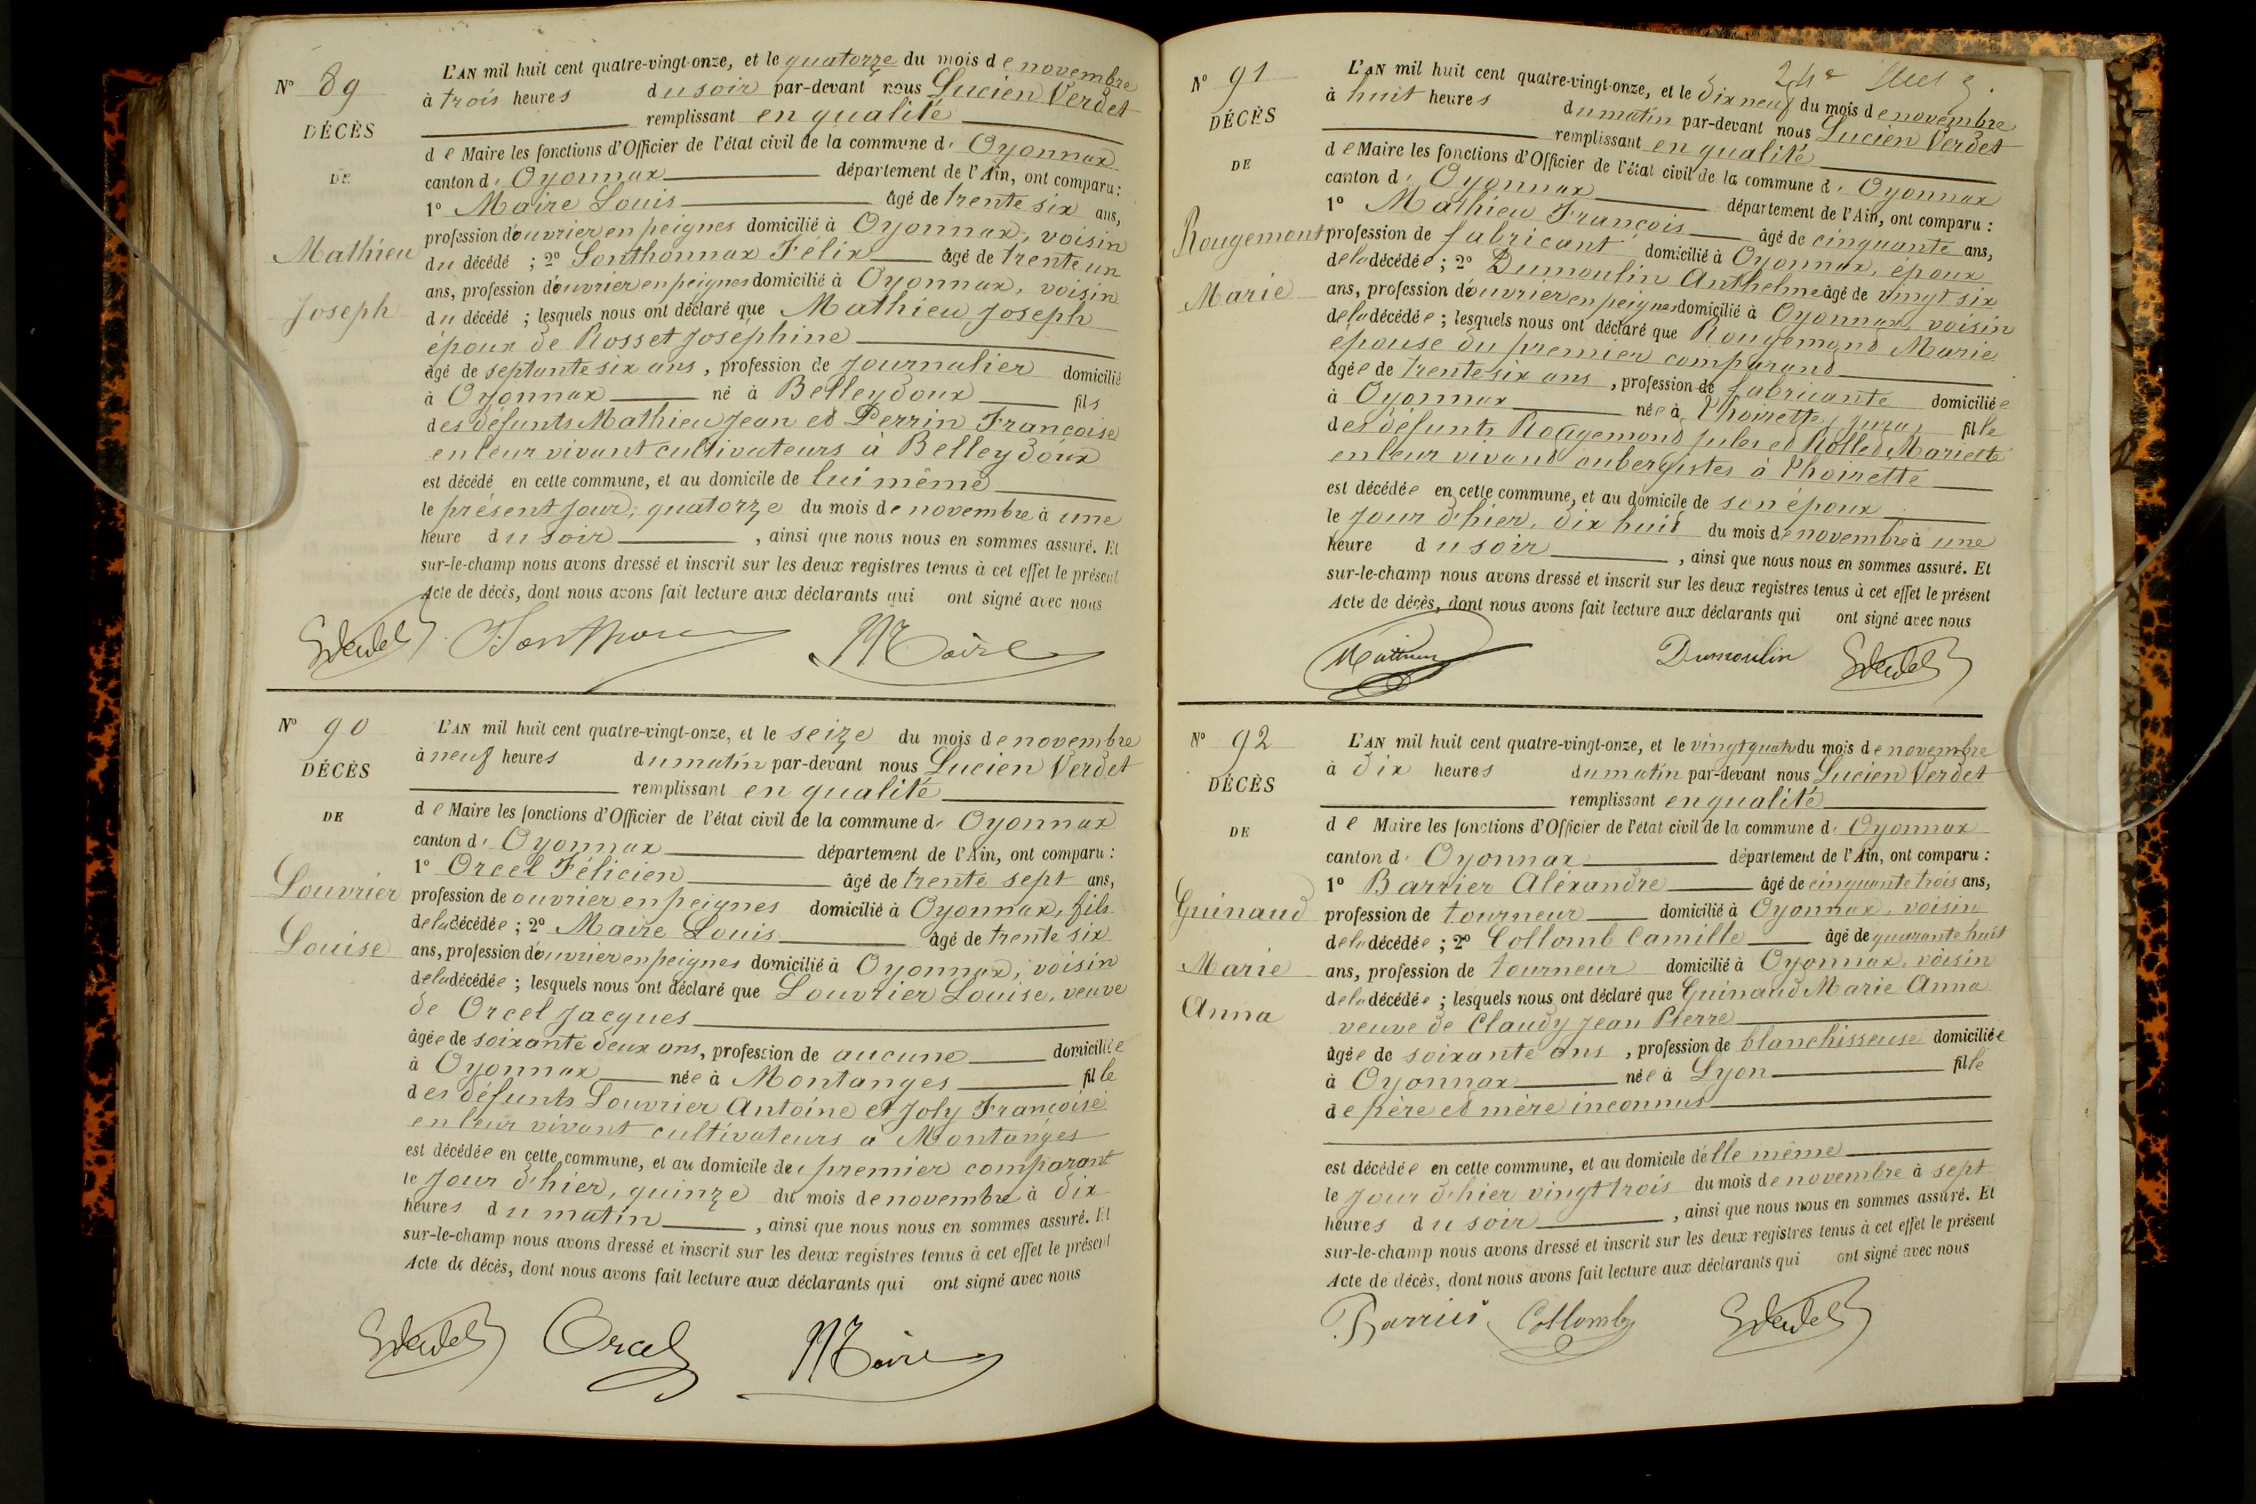 N° 89
DÉCÈS
DE
Mathieu
Joseph
L'AN mil huit cent quatre-vingt-onze, et le quatorze du mois de novembre
à trois heures du soir par-devant nous Lucien Verdet
remplissant en qualité
de Maire les fonctions d'Officier de l'état civil de la commune d' Oyonnax
canton d' Oyonnax département de l'Ain, ont comparu :
1° Maire Louis âgé de trente six ans,
profession d'ouvrier en peignes domicilié à Oyonnax, voisin
du décédé ; 2° Sonthonnax Félix âgé de trente un
ans, profession d'ouvrier en peignes domicilié à Oyonnax, voisin
du décédé ; lesquels nous ont déclaré que Mathieu Joseph
époux de Rosset Joséphine
âgé de septante six ans, profession de journalier domicilié
à Oyonnax né à Belleydoux fils
des défunts Mathieu Jean et Perrin Françoise
en leur vivant cultivateurs à Belleydoux
est décédé en cette commune, et au domicile de lui même
le présent jour, quatorze du mois de novembre à une
heure du soir, ainsi que nous nous en sommes assuré. Et
sur-le-champ nous avons dressé et inscrit sur les deux registres tenus à cet effet le présent
Acte de décès, dont nous avons fait lecture aux déclarants qui ont signé avec nous
Maire
N° 90
DÉCÈS
DE
Louvrier
Louise
L'AN mil huit cent quatre-vingt-onze, et le seize du mois de novembre
à neuf heures du matin par-devant nous Lucien Verdet
remplissant en qualité
de Maire les fonctions d'Officier de l'état civil de la commune d' Oyonnax
canton d' Oyonnax département de l'Ain, ont comparu :
1° Orcel Félicien âgé de trente sept ans,
profession de ouvrier en peignes domicilié à Oyonnax, fils
de la décédée ; 2° Maire Louis âgé de trente six
ans, profession d'ouvrier en peignes domicilié à Oyonnax, voisin
de la décédée ; lesquels nous ont déclaré que Louvrier Louise, veuve
de Orcel Jacques
âgée de soixante deux ans, profession de aucune domiciliée
à Oyonnax née à Montanges fille
des défunts Louvrier Antoine et Joly Françoise
en leur vivant cultivateurs à Montanges
est décédée en cette commune, et au domicile de premier comparant
le jour d'hier, quinze du mois de novembre à dix
heures du matin, ainsi que nous nous en sommes assuré. Et
sur-le-champ nous avons dressé et inscrit sur les deux registres tenus à cet effet le présent
Acte de décès, dont nous avons fait lecture aux déclarants qui ont signé avec nous
Orcel Maire
N° 91
DÉCÈS
DE
Rougemont
Marie
L'AN mil huit cent quatre-vingt-onze, et le dix neuf du mois de novembre
à huit heures du matin par-devant nous Lucien Verdet
remplissant en qualité
de Maire les fonctions d'Officier de l'état civil de la commune d' Oyonnax
canton d' Oyonnax département de l'Ain, ont comparu :
1° Mathieu François âgé de cinquante ans,
profession de fabricant domicilié à Oyonnax, époux
de la décédée ; 2° Dumoulin Anthelme âgé de vingt six
ans, profession d'ouvrier en peignes domicilié à Oyonnax, voisin
de la décédée ; lesquels nous ont déclaré que Rougemond Marie
épouse du premier comparand
âgée de trente six ans, profession de fabricante domiciliée
à Oyonnax née à Thoirette, Jura, fille
des défunts Rougemond Jules et Rolled Mariette
en leur vivand aubergistes à Thoirette
est décédée en cette commune, et au domicile de son époux
le jour d'hier, dix huit du mois de novembre à une
heure du soir, ainsi que nous nous en sommes assuré. Et
sur-le-champ nous avons dressé et inscrit sur les deux registres tenus à cet effet le présent
Acte de décès, dont nous avons fait lecture aux déclarants qui ont signé avec nous
Mathieu Dumoulin
N° 92
DÉCÈS
DE
Guinaud
Marie
Anna
L'AN mil huit cent quatre-vingt-onze, et le vingt quatre du mois de novembre
à dix heures du matin par-devant nous Lucien Verdet
remplissant en qualité
de Maire les fonctions d'Officier de l'état civil de la commune d' Oyonnax
canton d' Oyonnax département de l'Ain, ont comparu :
1° Barrier Aléxandre âgé de cinquante trois ans,
profession de tourneur domicilié à Oyonnax, voisin
de la décédée ; 2° Collomb Camille âgé de quarante huit
ans, profession de tourneur domicilié à Oyonnax, voisin
de la décédée ; lesquels nous ont déclaré que Guinaud Marie Anna
veuve de Claudy Jean Pierre
âgée de soixante ans, profession de blanchisseuse domiciliée
à Oyonnax née à Lyon fille
de père et mère inconnus
est décédée en cette commune, et au domicile d'elle même
le jour d'hier vingt trois du mois de novembre à sept
heures du soir, ainsi que nous nous en sommes assuré. Et
sur-le-champ nous avons dressé et inscrit sur les deux registres tenus à cet effet le présent
Acte de décès, dont nous avons fait lecture aux déclarants qui ont signé avec nous
Barrier Collomb